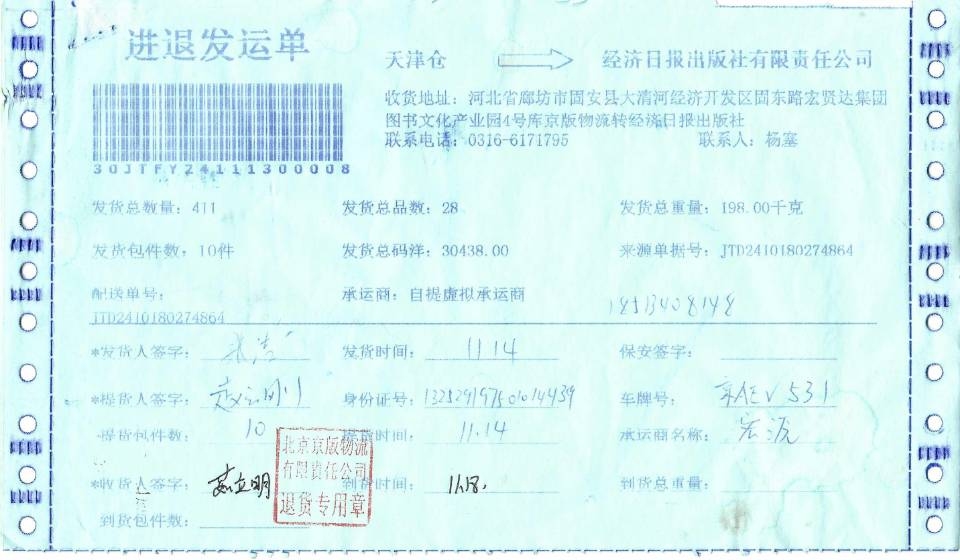 进退发运单
天津仓 经济日报出版社有限责任公司
收货地址：河北省廊坊市固安县大清河经济开发区固东路宏贤达集团
图书文化产业园4号库京版物流转经济日报出版社
联系电话：0316-6171795 联系人：杨塞
30JTFY24111300008
发货总数量：411 发货总品数：28 发货总重量：198.00千克
发货包件数：10件 发货总码洋：30438.00 来源单据号：JTD2410180274864
配送单号： 承运商：自提虚拟承运商
JTD2410180274864
18513408148
*发货人签字： 发货时间：11.14 保安签字：
*提货人签字： 身份证号：132529197501014439 车牌号：
提货包件数：10 提货时间：11.14 承运商名称：宏源
*收货人签字： 到货时间：11.18. 到货总重量：
到货包件数：
北京京版物流
有限责任公司
退货专用章